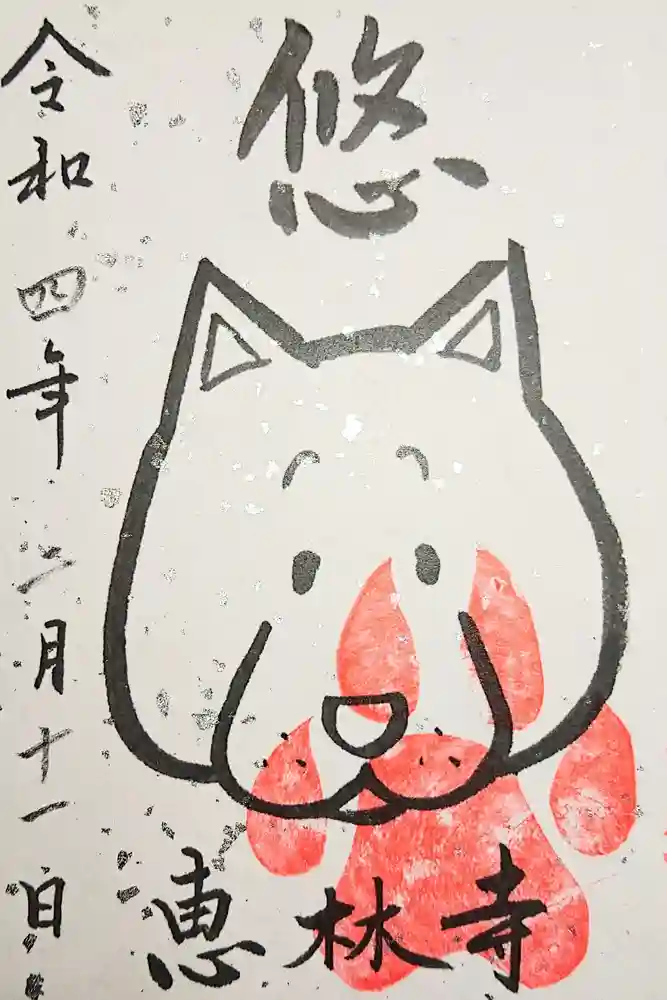 悠
令和四年二月十一日
恵林寺